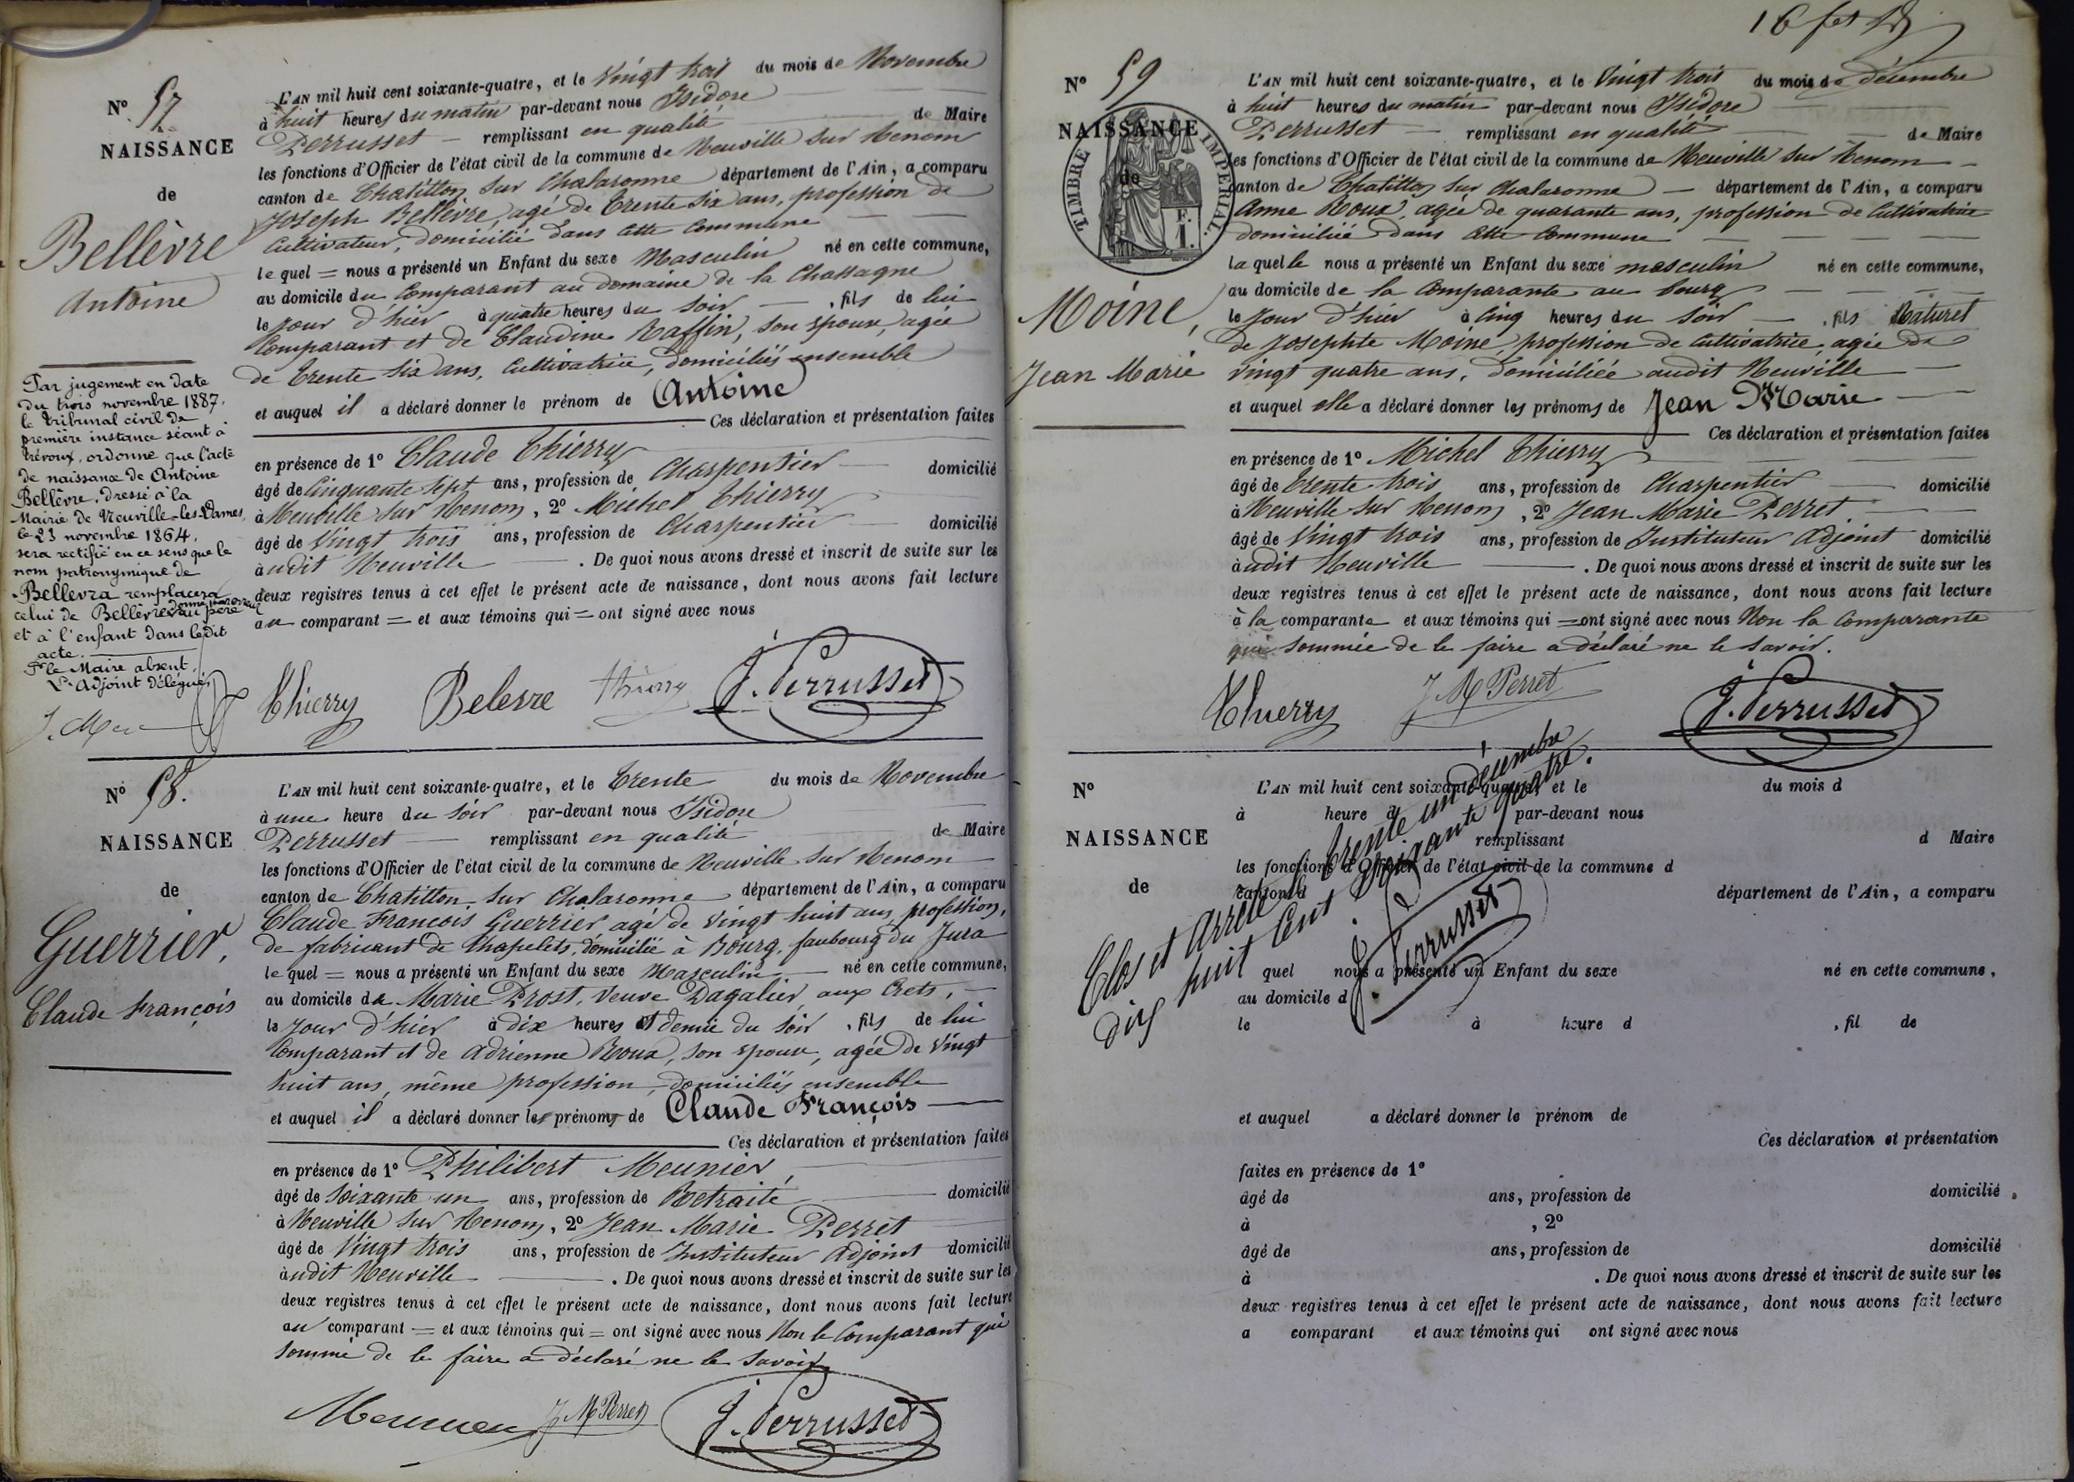 Nº 57
NAISSANCE
de
Bellèvre
Antoine
Par jugement en date
du trois novembre 1887,
le tribunal civil de
première instance séant à
Trévoux, ordonne que l'acte
de naissance de Antoine
Bellèvre, dressé à la
Mairie de Neuville-les-Dames,
le 23 novembre 1864,
sera rectifié en ce sens que le
nom patronymique de
Bellevra remplacera
celui de Bellèvre donné par erreur au père
et à l'enfant dans ledit
acte.
Pr le Maire absent,
L'Adjoint délégué,
L'AN mil huit cent soixante-quatre, et le Vingt trois du mois de Novembre
à huit heures du matin par-devant nous Isidore
Perrusset remplissant en qualité de Maire
les fonctions d'Officier de l'état civil de la commune de Neuville sur Renom
canton de Chatillon sur Chalaronne département de l'Ain, a comparu
Joseph Bellèvre, agé de trente six ans, profession de
Cultivateur, domicilié dans cette commune
le quel = nous a présenté un Enfant du sexe Masculin né en cette commune,
au domicile du Comparant au domaine de la Chassagne
le jour d'hier à quatre heures du soir, fils de lui
Comparant et de Claudine Raffin, son épouse, agée
de trente six ans, Cultivatrice, domiciliés ensemble
et auquel il a déclaré donner le prénom de Antoine
Ces déclaration et présentation faites
en présence de 1º Claude Thierry
âgé de Cinquante sept ans, profession de Charpentier domicilié
à Neuville sur Renom, 2º Michel Thierry
âgé de Vingt trois ans, profession de Charpentier domicilié
audit Neuville. De quoi nous avons dressé et inscrit de suite sur les
deux registres tenus à cet effet le présent acte de naissance, dont nous avons fait lecture
au comparant = et aux témoins qui = ont signé avec nous
Thierry Belevre Thierry J. Perrusset
Nº 58.
NAISSANCE
de
Guerrier,
Claude François
L'AN mil huit cent soixante-quatre, et le Trente du mois de Novembre
à une heure du soir par-devant nous Isidore
Perrusset remplissant en qualité de Maire
les fonctions d'Officier de l'état civil de la commune de Neuville sur Renom
canton de Chatillon sur Chalaronne département de l'Ain, a comparu
Claude François Guerrier, agé de vingt huit ans, profession
de fabricant de Chapelets, domicilié à Bourg, faubourg du Jura
le quel = nous a présenté un Enfant du sexe Masculin né en cette commune,
au domicile de Marie Prost, Veuve Dagalier, aux Crets,
le jour d'hier à dix heures et demie du soir, fils de lui
Comparant et de Adrienne Roux, son épouse, agée de vingt
huit ans, même profession, domiciliés ensemble
et auquel il a déclaré donner les prénoms de Claude François
Ces déclaration et présentation faites
en présence de 1º Philibert Meunier,
âgé de soixante un ans, profession de Retraité domicilié
à Neuville sur Renom, 2º Jean Marie Perret
âgé de Vingt trois ans, profession de Instituteur Adjoint domicilié
audit Neuville. De quoi nous avons dressé et inscrit de suite sur les
deux registres tenus à cet effet le présent acte de naissance, dont nous avons fait lecture
au comparant = et aux témoins qui = ont signé avec nous Non le Comparant qui
sommé de le faire a déclaré ne le savoir
Meunier J M Perret J. Perrusset
Nº 59
NAISSANCE
de
TIMBRE IMPERIAL.
Moine,
Jean Marie
L'AN mil huit cent soixante-quatre, et le Vingt trois du mois de décembre
à huit heures du matin par-devant nous Isidore
Perrusset remplissant en qualité de Maire
les fonctions d'Officier de l'état civil de la commune de Neuville sur Renom
canton de Chatillon sur Chalaronne département de l'Ain, a comparu
Anne Roux, agée de quarante ans, profession de Cultivatrice
domiciliée dans cette commune
la quelle nous a présenté un Enfant du sexe masculin né en cette commune,
au domicile de la Comparante au bourg
le jour d'hier à Cinq heures du soir, fils Naturel
de Josephte Moine, profession de Cultivatrice, agée de
vingt quatre ans, domiciliée audit Neuville
et auquel elle a déclaré donner les prénoms de Jean Marie
Ces déclaration et présentation faites
en présence de 1º Michel Thierry
âgé de trente trois ans, profession de Charpentier domicilié
à Neuville sur Renom, 2º Jean Marie Perret
âgé de Vingt trois ans, profession de Instituteur Adjoint domicilié
audit Neuville. De quoi nous avons dressé et inscrit de suite sur les
deux registres tenus à cet effet le présent acte de naissance, dont nous avons fait lecture
à la comparante et aux témoins qui = ont signé avec nous Non la Comparante
qui sommée de le faire a déclaré ne le savoir.
Thierry J M Perret J. Perrusset
Nº
NAISSANCE
de
L'AN mil huit cent soixante-quatre, et le du mois d
à heure d par-devant nous
remplissant d Maire
les fonctions d'Officier de l'état civil de la commune d
canton d département de l'Ain, a comparu
quel nous a présenté un Enfant du sexe né en cette commune,
au domicile d
le à heure d , fil de
Clos et Arrêté le trente un décembre
dix huit Cent soixante quatre.
J. Perrusset
et auquel a déclaré donner le prénom de
Ces déclaration et présentation
faites en présence de 1º
âgé de ans, profession de domicilié
à , 2º
âgé de ans, profession de domicilié
à . De quoi nous avons dressé et inscrit de suite sur les
deux registres tenus à cet effet le présent acte de naissance, dont nous avons fait lecture
a comparant et aux témoins qui ont signé avec nous